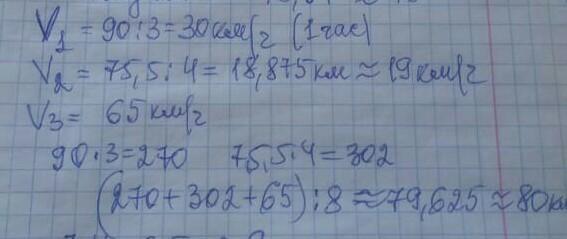 V₁ = 90:3=30км/г (1час)
V₂ = 75,5:4=18,875км ≈19км/г
V₃ = 65км/г
90·3=270 75,5·4=302
(270+302+65):8≈79,625≈80км